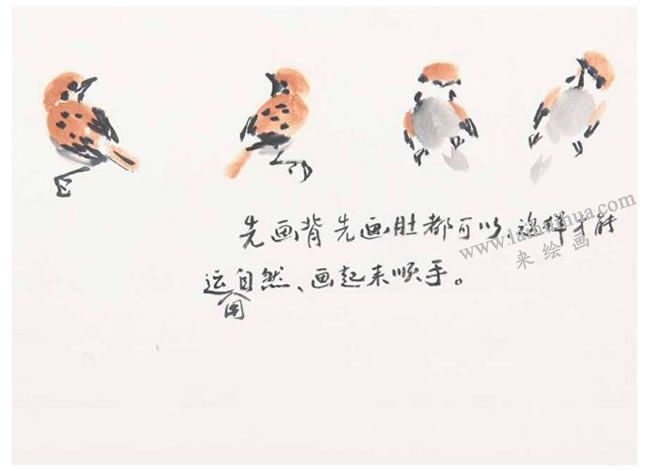 先画背先画肚都可以,这样才能
运用自然、画起来顺手。
www.laihuihua.com
来绘画